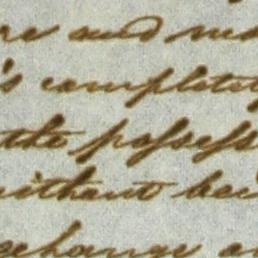 re and
's completely
the possess
without bei
xchange an